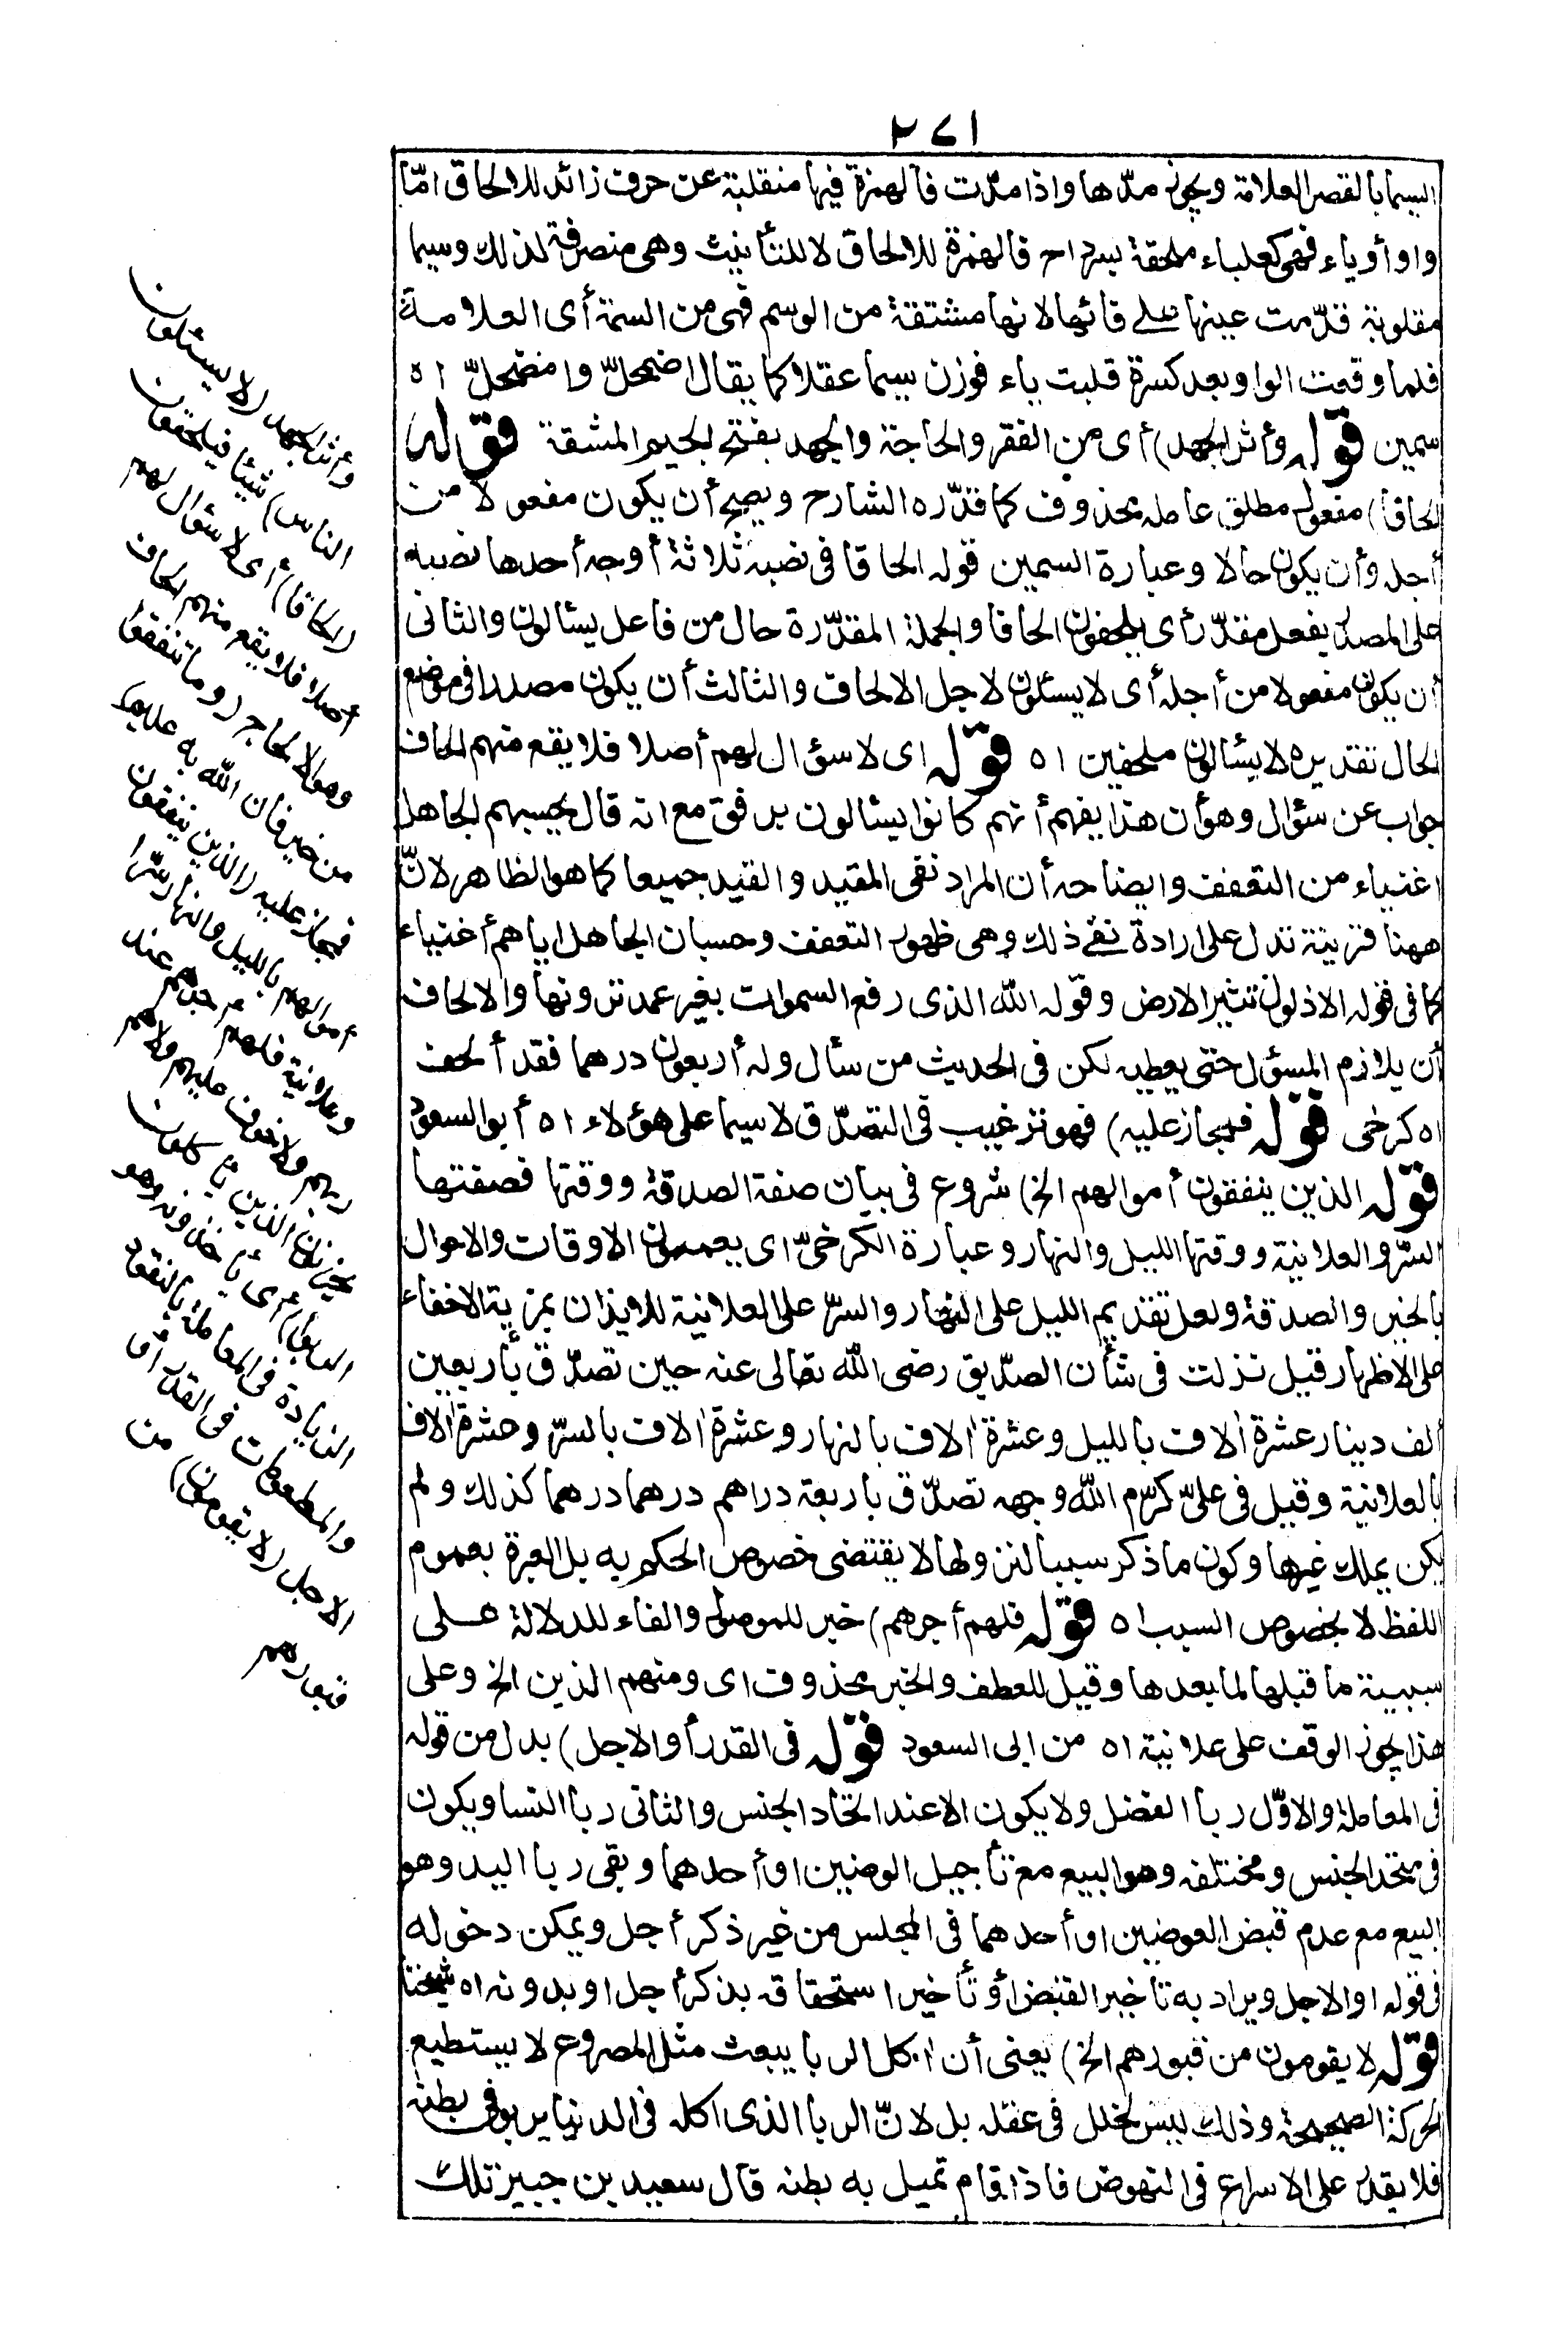 ٢٧١
السيما بالقصر العلامة ويجوز مدّها واذا مدّت فالهمزة فيها منقلبة عن حرف زائد للالحاق امّا
واو أو ياء فهى كعلباء ملحقة بسرداح فالهمزة للالحاق لا للتأنيث وهى منصرفة لذلك وسيما
مقلوبة قدّمت عينها على فائها لانها مشتقة من الوسم فهى من السمة أى العلامة
فلما وقعت الواو بعد كسرة قلبت ياء فوزن سيما عفلا كما يقال اضمحلّ وامضحلّ اه
سمين قوله وأثر الجهد) أى من الفقر والحاجة والجهد بفتح الجيم المشقة قوله
الحافا) مفعول مطلق عامله محذوف كما قدّره الشارح ويصح أن يكون مفعولا من
أجله وأن يكون حالا وعبارة السمين قوله الحافا فى نصبه ثلاثة أوجه أحدها نصبه
على المصدر بفعل مقدّر أى يلحفون الحافا والجملة المقدّرة حال من فاعل يسئالون والثانى
أن يكون مفعولا من أجله أى لا يسئلون لاجل الالحاف والثالث أن يكون مصدرا فى موضع
الحال تقديره لا يسئالون ملحفين اه قوله اى لا سؤال لهم أصلا فلا يقع منهم الحاف
جواب عن سؤال وهو أن هذا يفهم أنهم كانوا يسئالون برفق مع انه قال يحسبهم الجاهل
اغنياء من التعفف وايضاحه أن المراد نفى المقيد والقيد جميعا كما هو الظاهر لانّ
ههنا قرينة تدل على ارادة نفى ذلك وهى ظهور التعفف وحسبان الجاهل اياهم أغنياء
كما فى قوله الا ذلول تثير الارض وقوله الله الذى رفع السموات بغير عمد ترونها والالحاف
أن يلازم المسؤل حتى يعطيه لكن فى الحديث من سأل وله أربعون درهما فقد ألحف
اه كرخى قوله فمجاز عليه) فهو ترغيب فى التصدّق لا سيما على هؤلاء اه أبو السعود
قوله الذين ينفقون أموالهم الخ) شروع فى بيان صفة الصدقة ووقتها فصفتها
السّر والعلانية ووقتها الليل والنهار وعبارة الكرخىّ اى يعمون الاوقات والاحوال
بالخير والصدقة ولعل تقديم الليل على النهار والسرّ على العلانية للايذان بمزية الاخفاء
على الاظهار قيل نزلت فى شأن الصدّيق رضى الله تعالى عنه حين تصدّق بأربعين
ألف دينار عشرة الاف بالليل وعشرة الاف بالنهار وعشرة الاف بالسرّ وعشرة الاف
بالعلانية وقيل فى علىّ كرّم الله وجهه تصدّق باربعة دراهم درهما درهما كذلك ولم
يكن يملك غيرها وكون ما ذكر سببا لنزولها لا يقتضى خصوص الحكم به بل العبرة بعموم
اللفظ لا بخصوص السبب اه قوله فلهم أجرهم) خبر للموصول والفاء للدلالة على
سببية ما قبلها لما بعدها وقيل للعطف والخبر محذوف اى ومنهم الذين الخ وعلى
هذا يجوز الوقف على علانية اه من ابى السعود قوله فى القدر أو الاجل) بدل من قوله
فى المعاملة والاوّل ربا الفضل ولا يكون الا عند اتحاد الجنس والثانى ربا النسا ويكون
فى متحد الجنس ومختلفه وهو البيع مع تأجيل العوضين او أحدهما وبقى ربا اليد وهو
البيع مع عدم قبض العوضين او أحدهما فى المجلس من غير ذكر أجل ويمكن دخوله
فى قوله او الاجل ويراد به تاخير القبض أو تأخير استحقاقه بذكر أجل او بدونه اه شيخنا
قوله لا يقومون من قبورهم الخ) يعنى أن اكل الربا يبعث مثل المصروع لا يستطيع
الحركة الصحيحة وذلك ليس لخلل فى عقله بل لانّ الربا الذى اكله فى الدنيا يربو فى بطنه
فلا يقدر على الاسراع فى النهوض فاذا قام تميل به بطنه قال سعيد بن جبير تلك
وأثر الجهد (لا يسئلون
الناس) شيئا فيلحفون
(الحافا) أى لا سؤال لهم
أصلا فلا يقع منهم الحاف
وهو الالحاح (وما تنفقوا
من خير فان الله به عليم)
فمجاز عليه (الذين ينفقون
أموالهم بالليل والنهار سرّا
وعلانية فلهم أجرهم عند
ربهم ولا خوف عليهم ولا هم
يحزنون الذين يأكلون
الربوا) أى يأخذونه وهو
الزيادة فى المعاملة بالنقود
والمطعومات فى القدر أو
الاجل (لا يقومون) من
قبورهم